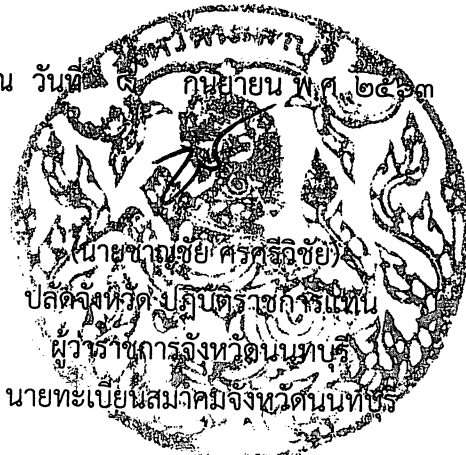 น วันที่ ๘ กันยายน พ.ศ. ๒๕๖๓
(นายชาญชัย ศรศรีวิชัย)
ปลัดจังหวัด ปฏิบัติราชการแทน
ผู้ว่าราชการจังหวัดนนทบุรี
นายทะเบียนสมาคมจังหวัดนนทบุรี